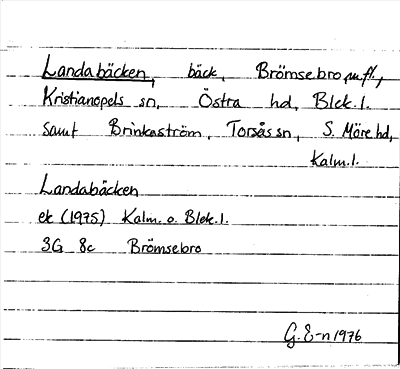 Landabäcken, bäck, Brömsebro m.fl.,
Kristianopels sn, Östra hd, Blek.l.
samt Brinkaström, Torsås sn, S. Möre hd,
Kalm.l.
Landabäcken
ek (1975) Kalm. o. Blek.l.
3G 8c Brömsebro
G. E-n 1976